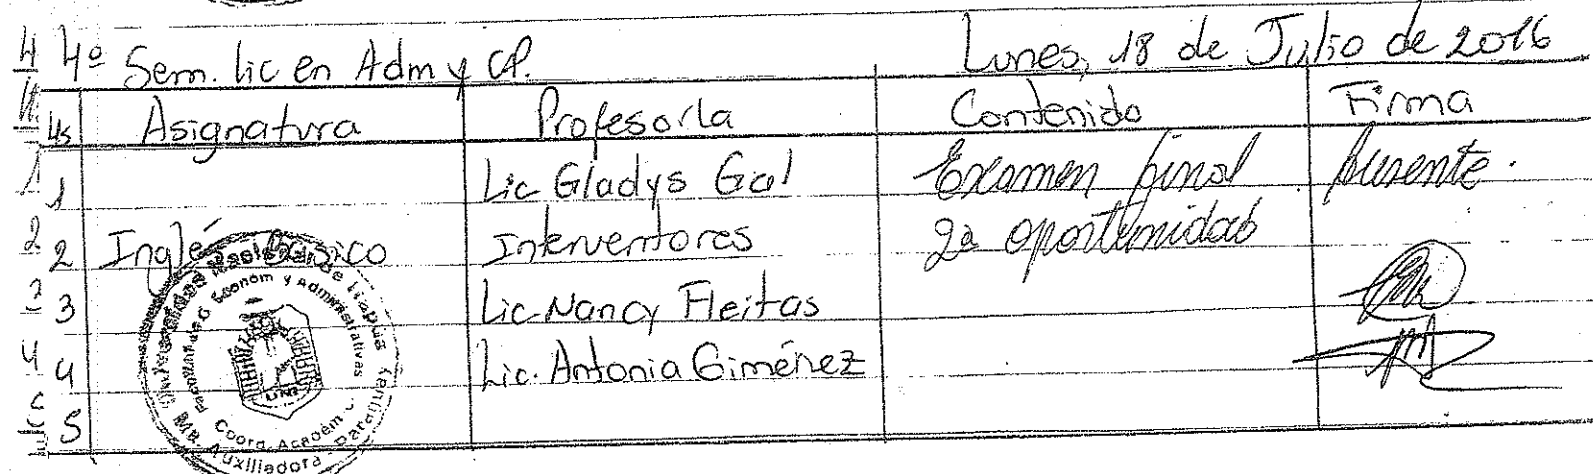 4º Sem. Lic en Adm y CP. Lunes, 18 de Julio de 2016
Hs Asignatura Profesor/a Contenido Firma
1 Lic Gladys Gal Examen final Ausente.
2 Inglés Básico Interventores 2a oportunidad
3 Lic Nancy Fleitas
4 Lic. Antonia Giménez
5
Universidad Nacional de Itapúa
Facultad Econom y Administrativas
UNI
Coord. Académ
Ma. Auxiliadora - Paraguay